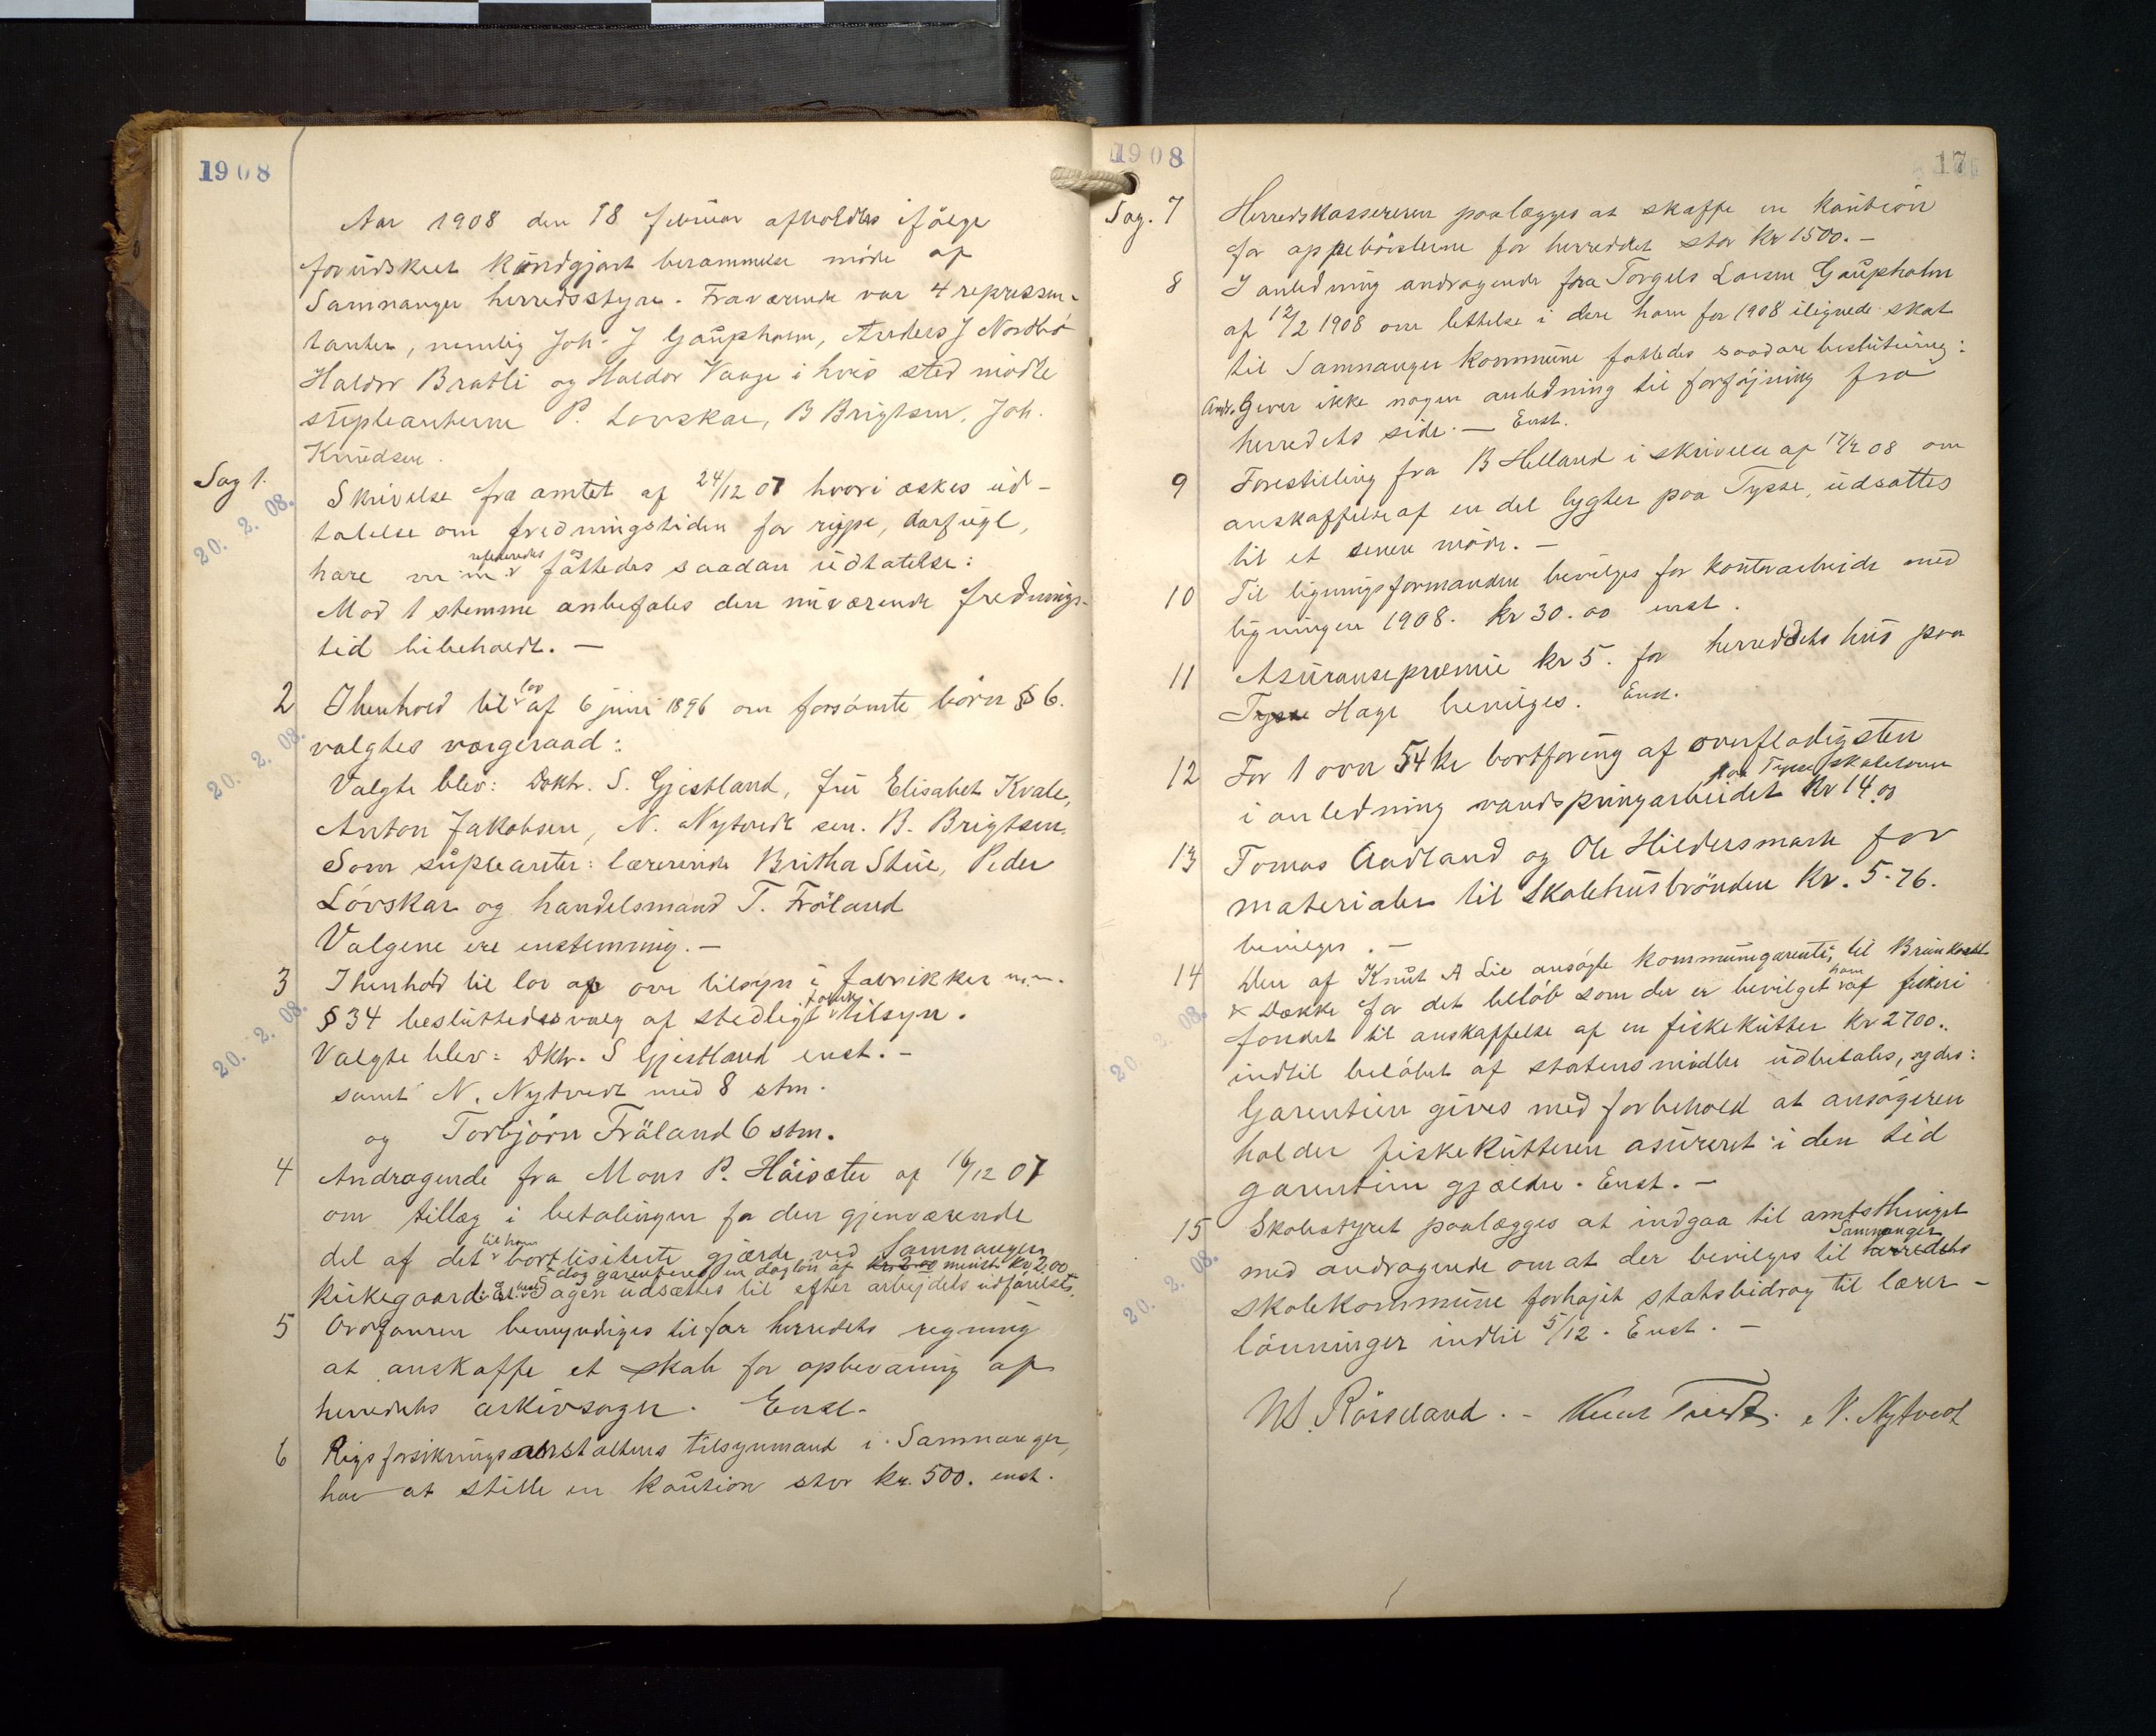 1908
Aar 1908 den 18 februar afholdtes ifölge
forudskeet kundgjort berammelse möde af
Samnanger herredsstyre. Fraværende var 4 represen-
tanter, nemlig Joh. J Gaupholm, Anders J Nordbö
Haldor Bratli og Haldor Vaage i hvis sted mödte
supleanterne P. Lövskar, B Brigtsen, Joh.
Knudsen.
Sag 1. Skrivelse fra amtet af 24/12 07 hvori æskes ud-
20. 2. 08.
talelse om fredningstiden for rype, aarfugl,
refereredes og
hare m m fattedes saadan udtalelse:
Mod 1 stemme anbefales den nuværende frednings-
tid bibeholdt. —
2 I henhold til lov af 6 juni 1896 om forsömte börn § 6.
20. 2. 08.
valgtesværgeraad:
Valgte blev: Dokt. S. Gjestland, frü Elisabet Kvale,
Anton Jakobsen, N. Nytvedt sen. B. Brigtsen.
Som supleanter: lærerinde Britha Stue, Peder
Lövskar og handelsmand T. Fröland
Valgene ere enstemmig. —
3 I henhold til lov af om tilsyn i fabrikker m.m.
20. 2. 08.
§ 34 besluttedes valg af stedligt tilsyn.
Valgte blev: Dktr. S Gjestland enst. —
samt N. Nytvedt med 8 stm.
og Torbjörn Fröland 6 stm.
4 Andragende fra Mons P. Höisæter af 16/12 07
om tillæg i betalingen for den gjenværende
del af det til ham bortlisiterte gjærde ved Samnanger
dog garenteres en daglön af kr. 2.00 minst kr 2.00
kirkegaard: Sagen udsættes til efter arbejdets udförelse.
5 Ordföreren bemyndiges til for herredets regning
at anskaffe et skab for opbevaring af
herredets arkivsager. Enst.
6 Rigsforsikringsanstaltens tilsynmand i Samnanger,
har at stille en kaution stor kr. 500. enst.
1908
17
Sag. 7 Herredskassereren paalægges at skaffe en kaution
for oppebörslerne for herreddet stor kr 1500. —
8 I anledning andragende fra Torgels Larsen Gaupholm
af 12/2 1908 om lettelse i den ham for 1908 ilignede skat
til Samnanger kommune fattedes saadan beslutning:
Andr. Giver ikke nogen anledning til forföjning fra
herredets side. — Enst.
9 Forestilling fra B Helland i skrivelse af 17/2 08 om
anskaffelse af en del lygter paa Tysse, udsattes
til et senere möde. —
10 Til ligningsformanden bevilges for kontorarbeide med
ligningen 1908. kr 30.00 enst.
11 Assuransepremie kr 5. for herreddets hus paa
Tysse Hage bevilges. Enst.
12 For 1 oven 54 kr bortföring af overflödig sten
paa Tysse skoletomt
i anledning vandspringarbeidet kr 14.00
13 Tomas Aadland og Ole Hildersmark for
materialer til skolehusbrönden kr. 5.76.
bevilges. —
14 Den af Knut A Lie ansögte kommunegarenti, til Brunkost
20. 2. 08.
& Dække for det belöb som der er bevilget ham af fiskeri
fondet til anskaffelse af en fiskekutter kr 2700..
indtil belöbet af statens midler udbetales, sydes:
Garentien gives med forbehold at ansögeren
holder fiskekutteren asureret i den tid
garentien gjælder. Enst. —
15 Skolestyret paalægges at indgaa til amtsthinget
20. 2. 08.
Samnanger
med andragende om at der bevilges til herredets
skolekommune forhöjet statsbidrag til lærer-
lönninger indtil 5/12. Enst. —
M. Rösseland. - Knut Tveit. N. Nytvedt